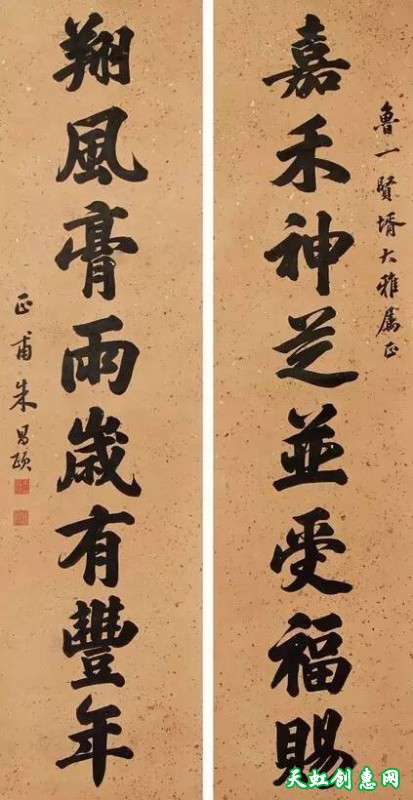 魯一賢壻大雅屬正
嘉禾神芝並受福賜
翔風膏雨歲有豐年
正甫朱昌頤
天虹创惠网